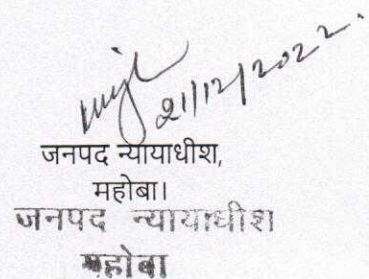 21/12/2022.
जनपद न्यायाधीश,
महोबा।
जनपद न्यायाधीश
महोबा